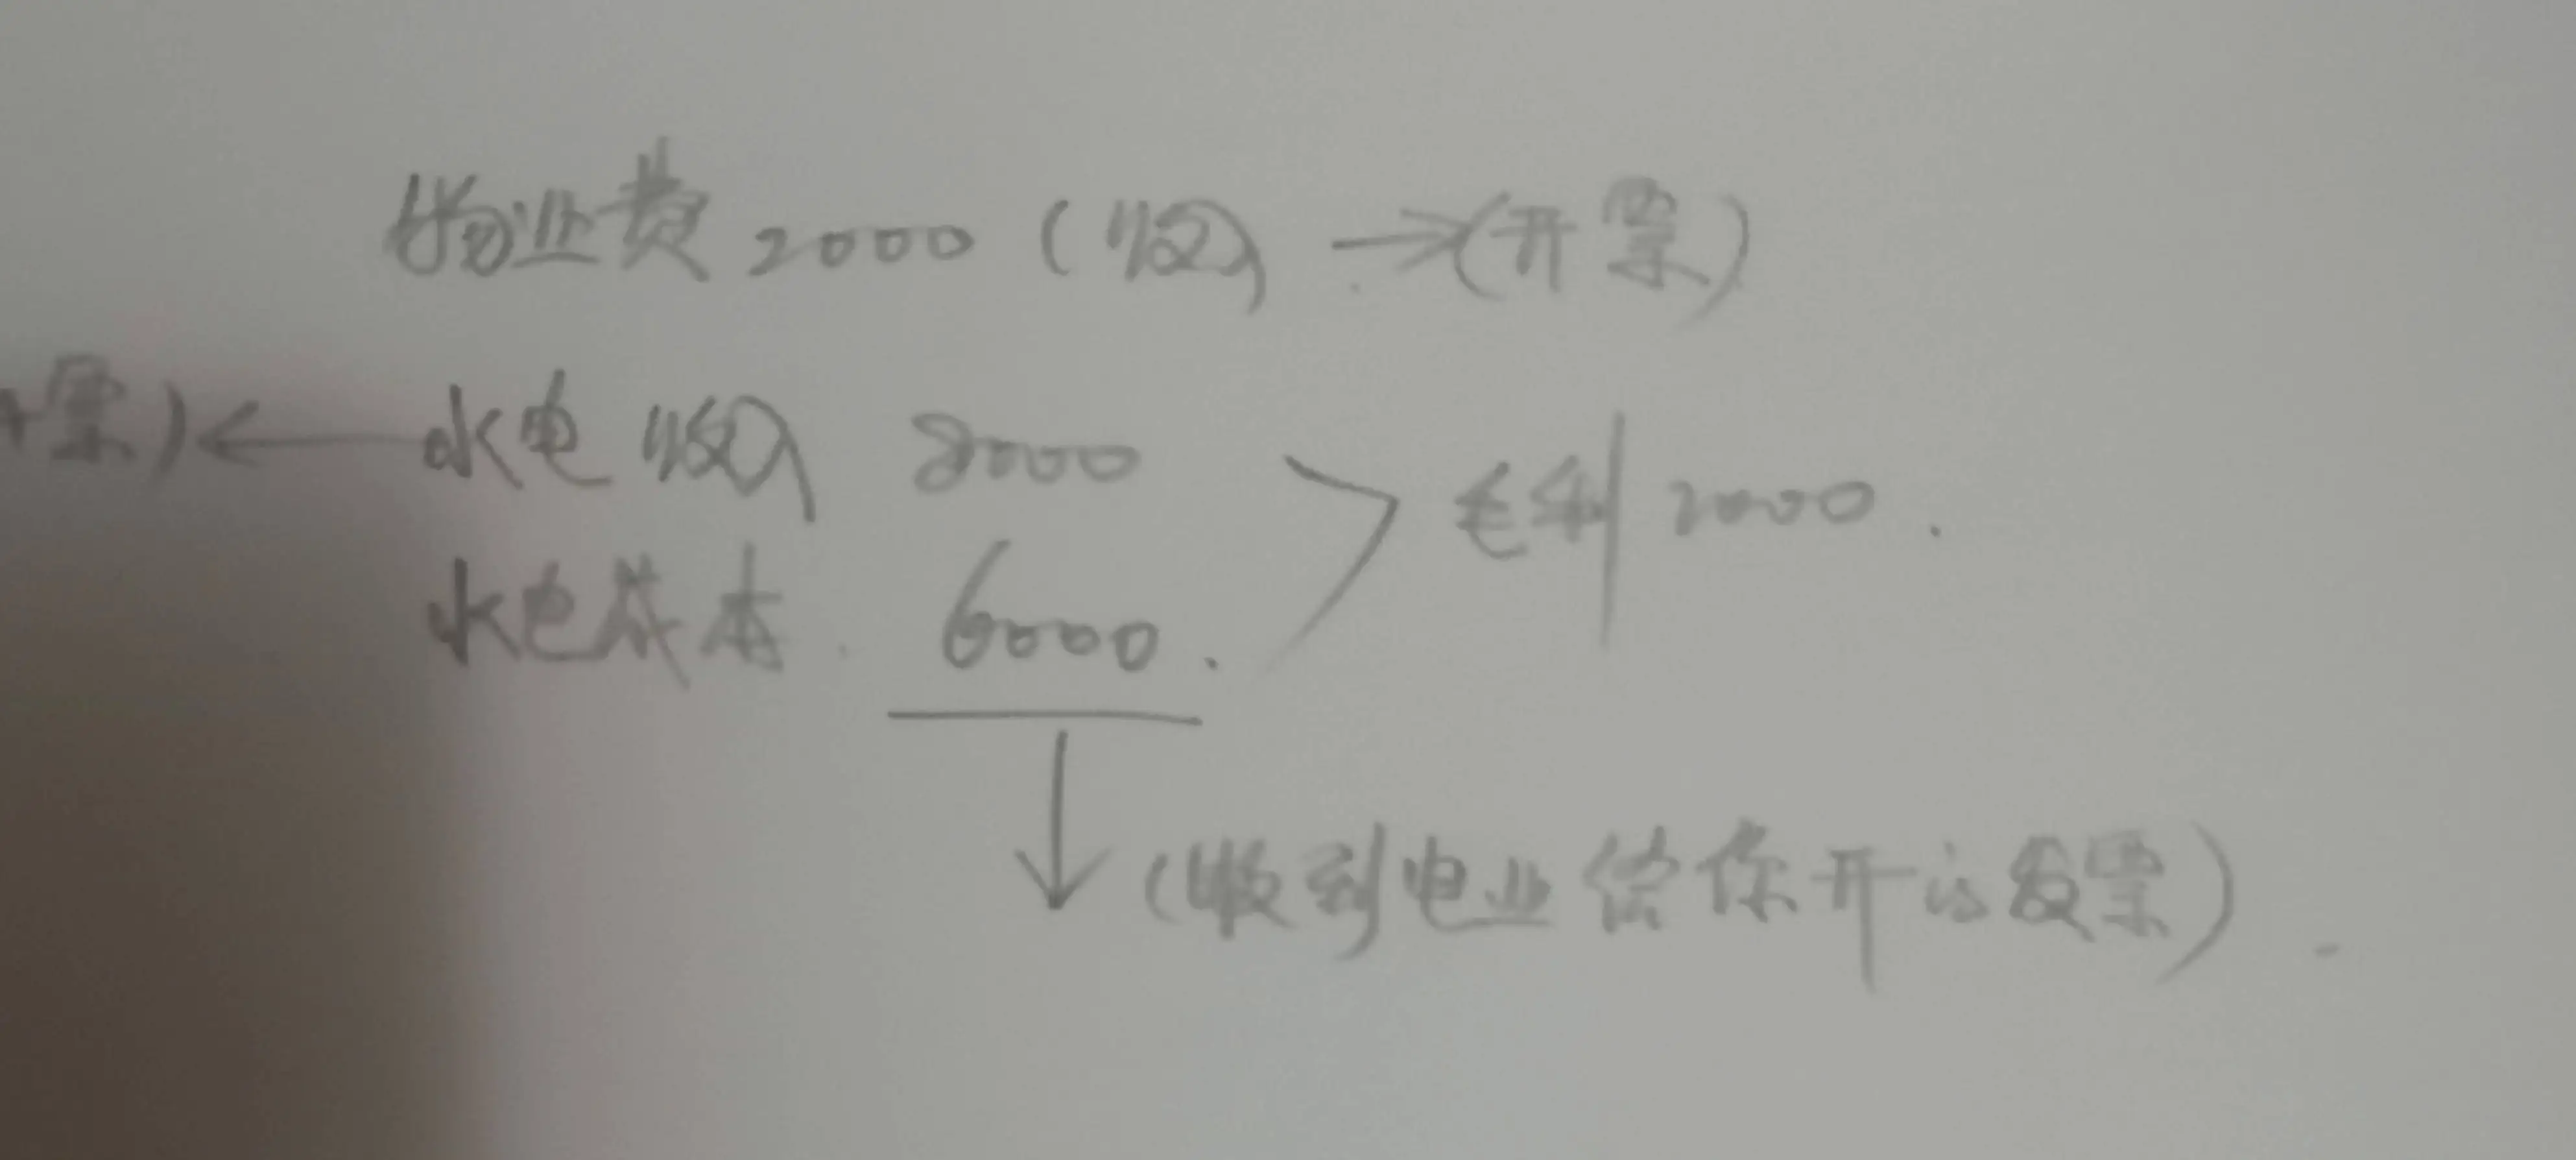 物业费 2000 (收入) →(开票)
票)← 水电收入 8000
毛利 2000.
水电成本. 6000.
↓ (收到电业给你开的发票).